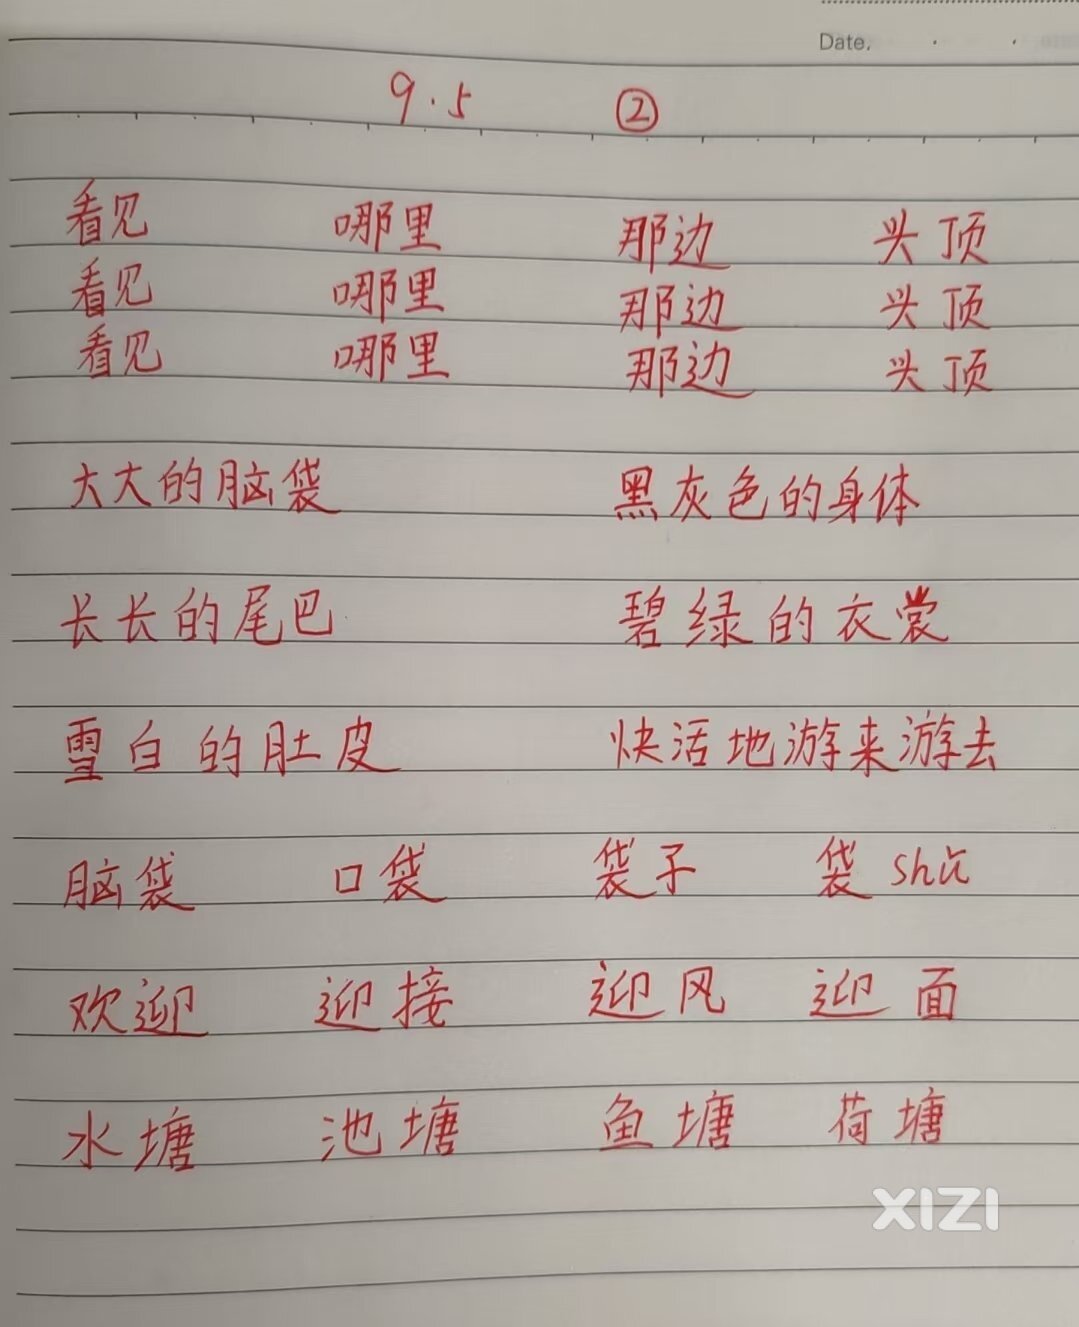 Date.
9.5 ②
看见 哪里 那边 头顶
看见 哪里 那边 头顶
看见 哪里 那边 头顶
大大的脑袋 黑灰色的身体
长长的尾巴 碧绿的衣裳
雪白的肚皮 快活地游来游去
脑袋 口袋 袋子 袋shǔ
欢迎 迎接 迎风 迎面
水塘 池塘 鱼塘 荷塘
XIZI